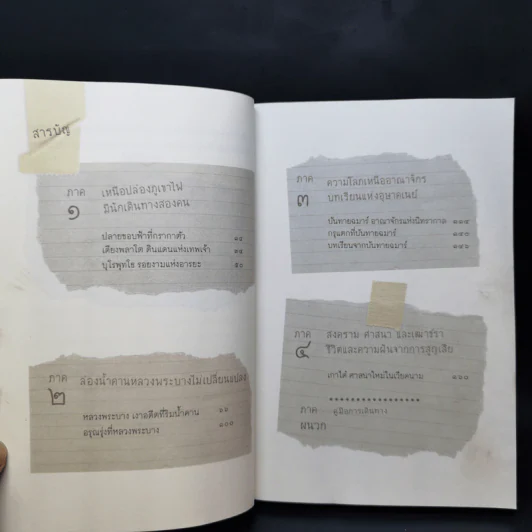 สารบัญ
ภาค ๑
เหนือปล่องภูเขาไฟ
มีนักเดินทางสองคน
ปลายขอบฟ้าที่กรากาตัว
เดียงพลาโต ดินแดนแห่งเทพเจ้า
บุโรพุทโธ รอยงามแห่งอารยะ
ภาค ๒
ล่องน้ำคานหลวงพระบางไม่เปลี่ยนแปลง
หลวงพระบาง เงาอดีตที่ริมน้ำคาน
อรุณรุ่งที่หลวงพระบาง ๑๐๐
ภาค ๓
ความโลภเหนืออาณาจักร
บทเรียนแห่งอุษาคเนย์
บันทายฉมาร์ อาณาจักรแห่งนิทรากาล
กรุแตกที่บันทายฉมาร์
บทเรียนจากบันทายฉมาร์
ภาค ๔
สงคราม ศาสนา และเฒ่าชรา
ชีวิตและความฝันจากการสูญเสีย
เกาได๋ ศาสนาใหม่ในเวียดนาม
ภาคผนวก
คู่มือการเดินทาง